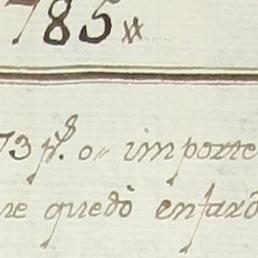 785
73 p.s o" importe
ue quedò enfard